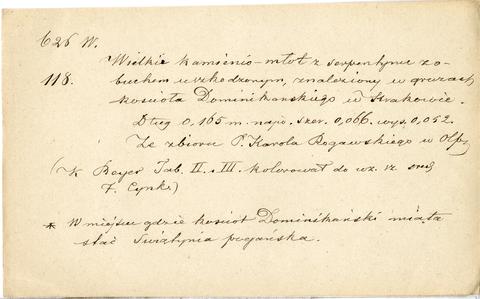 626 W.
Wielkie kamienio-młot z serpentynu z o-
118. buchem uszkodzonym, znaleziony w gruzach
kościoła Dominikańskiego w Krakowie.
Dług 0,165 m. najw. szer. 0,066. wys. 0,052.
Ze zbioru P. Karola Rogawskiego w Olpy
(K Beyer Tab. II i III kolorował do wz.
F. Cynk.)
* W miejscu gdzie kościół Dominikański miała
stać Świątynia pogańska.